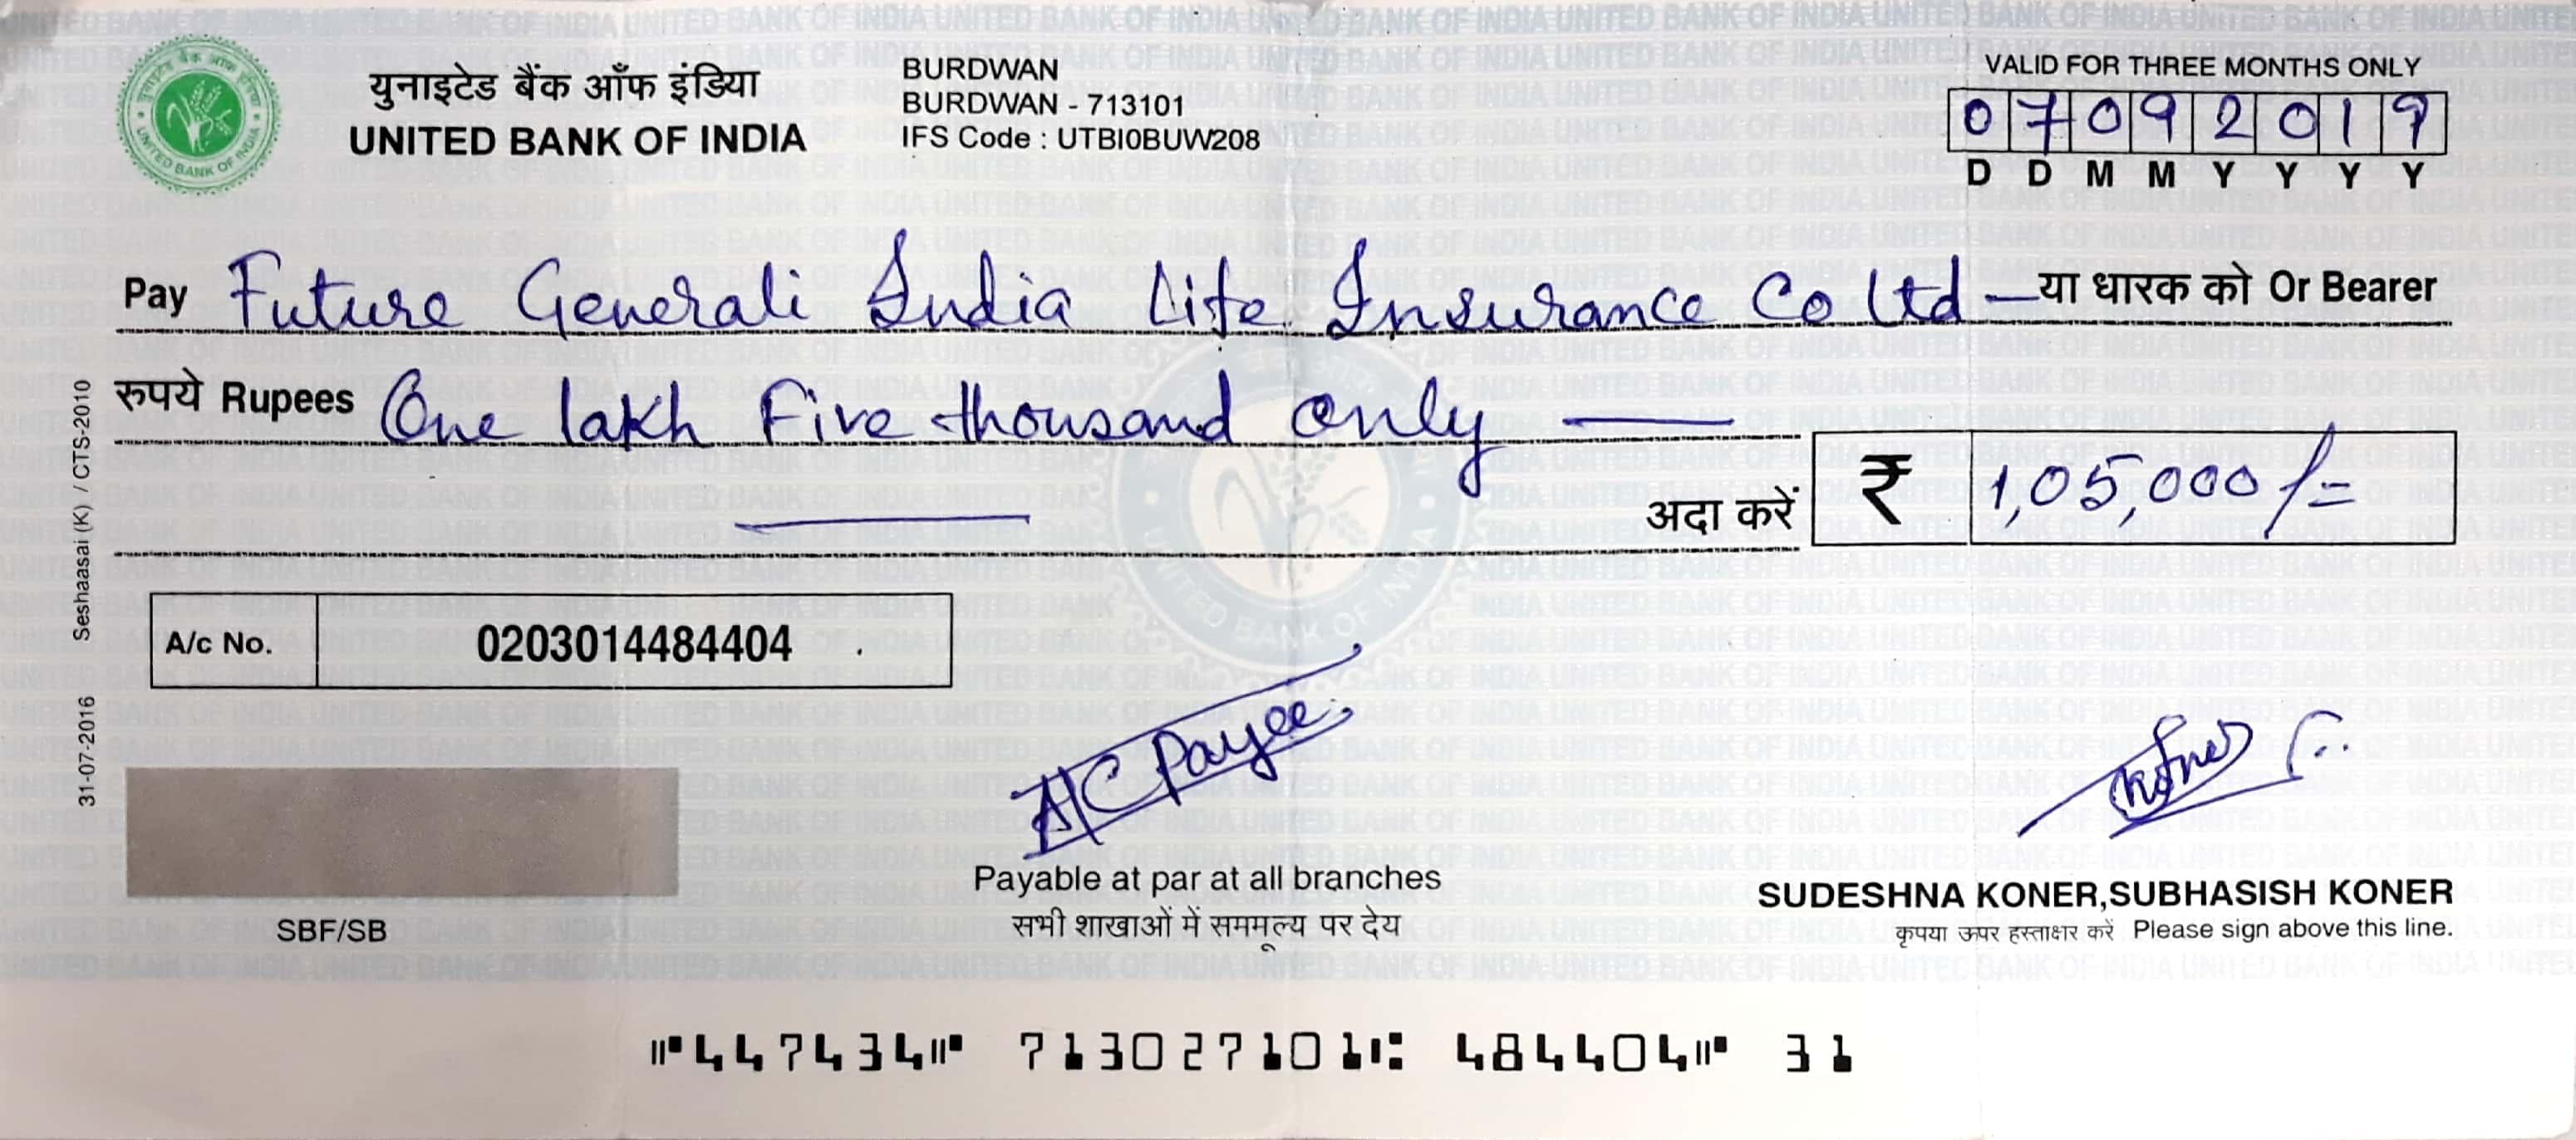 युनाइटेड बैंक ऑफ इंडिया
UNITED BANK OF INDIA
BURDWAN
BURDWAN - 713101
IFS Code : UTBI0BUW208
VALID FOR THREE MONTHS ONLY
0 7 0 9 2 0 1 9
D D M M Y Y Y Y
Pay Future Generali India Life Insurance Co Ltd — या धारक को Or Bearer
रुपये Rupees One lakh Five thousand only
अदा करें ₹ 1,05,000/=
A/c No. 0203014484404
Seshaasai (K) / CTS-2010
31-07-2016
A/C Payee
SBF/SB
Payable at par at all branches
सभी शाखाओं में सममूल्य पर देय
SUDESHNA KONER,SUBHASISH KONER
कृपया ऊपर हस्ताक्षर करें Please sign above this line.
⑈447434⑈ 713027101⑆ 484404⑈ 31